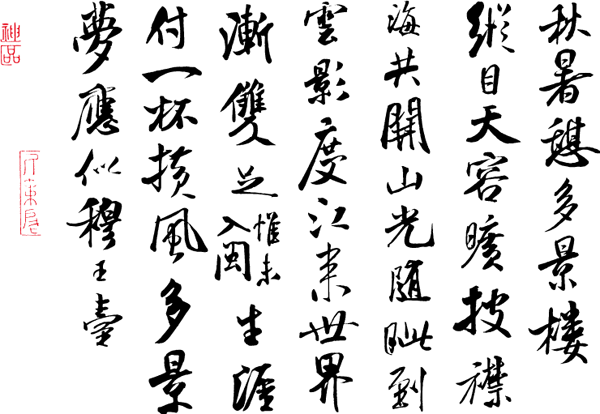 秋暑憩多景樓
縱目天容曠披襟
海共開山光随眦到
雲影度江来世界
漸雙足惟未入閩生涯
付一杯横風多景
夢應似穆王臺
神品